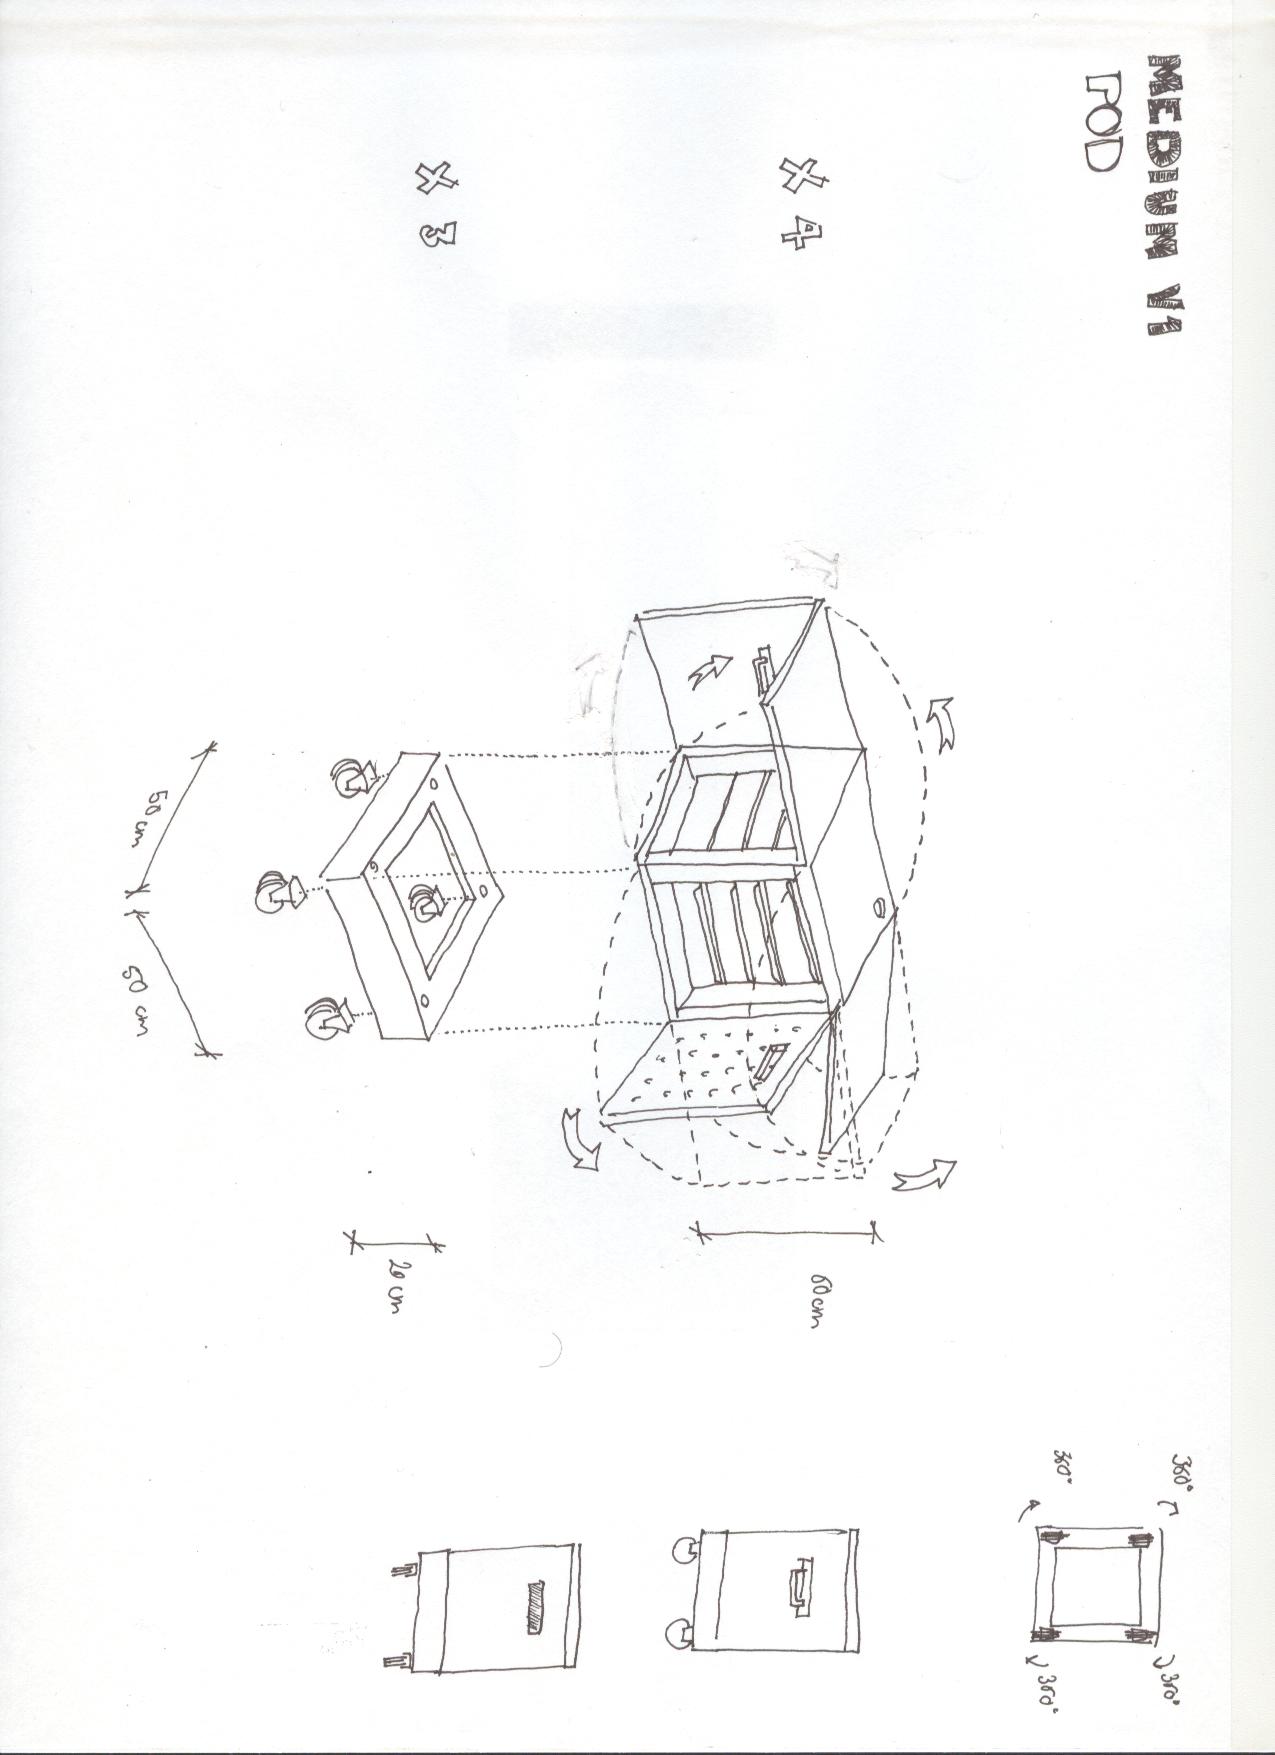 MEDIUM V1
POD
X 4
X 3
60 cm
20 cm
50 cm
50 cm
360°
360°
360°
360°